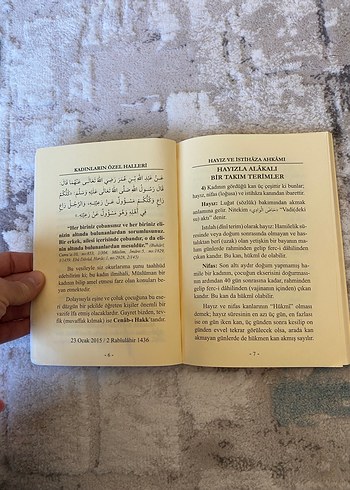 KADINLARIN ÖZEL HALLERİ
عَنْ عَبْدِ اللَّهِ بْنِ عُمَرَ رَضِيَ اللَّهُ تَعَالَى عَنْهُمَا قَالَ:
قَالَ رَسُولُ اللَّهِ صَلَّى اللَّهُ تَعَالَى عَلَيْهِ وَسَلَّمَ:
رَاعٍ وَكُلُّكُمْ مَسْؤُولٌ عَنْ رَعِيَّتِهِ، وَالرَّجُلُ رَاعٍ
فِي أَهْلِهِ وَهُوَ مَسْؤُولٌ عَنْ رَعِيَّتِهِ.
"Her biriniz çobansınız ve her biriniz eli-
nizin altında bulunanlardan sorumlusunuz.
Bir erkek, ailesi içerisinde çobandır, o da eli-
nin altında bulunanlardan mesuldür."
Bu vesileyle şu okurlarımı şunu
edelim ki; bu kadar Müslüman bir
kadının bilip amel etmesi farz olan konuları be-
yan etmektedir.
Dolayısıyla eşine ve çocuğuna bu ese-
ri düzgün bir şekilde öğreten kişiler önemli bir
vazife ifa etmiş olacaklardır. Gayret bizden, tev-
fik (muvaffak kılmak) ise Cenâb-ı Hakk'tandır.
23 Ocak 2015 / 2 Rabîulâhir 1436
- 6 -
HAYIZ VE İSTİHÂZA AHKÂMI
HAYIZLA ALÂKALI
BİR TAKIM TERİMLER
4) Kadının gördüğü kan üç çeşittir ki bunlar;
hayız, nifas (loğusa) ve istihâza kanından ibarettir.
Hayız: Lugat (sözlük) bakımından akmak
anlamına gelir. Nitekim «حَاضَ الْوَادِي» "Vadi(deki
su) aktı" denir.
Istılahi (dinî terim) olarak hayız: Hamilelik sü-
resinde veya doğum sonrasında olmayan ve has-
talıktan berî (uzak) olan yetişkin bir bayanın ma-
lum günlerde rahminden gelip ferc-i dâhilinden
(içinden) çıkan kandır. Bu kan, hükmî de olabilir.
Nifas: Son altı aydır doğum yapmamış ha-
mile bir kadının, çocuğun ekserisini doğurması-
nın ardından 40 gün sonrasına kadar, rahminden
gelip ferc-i dâhilinden (vajinanın içinden) çıkan
kandır. Bu kan da hükmî olabilir.
Hayız ve nifas kanlarının "Hükmî" olması
demek; hayız süresinin en azı üç gün, en fazlası
ise on gün iken kan, üç günden sonra kesilip on
günden evvel tekrar görülecek olsa, arada kan
akmayan günlerde de hükmen kan akmış sayılır.
- 7 -